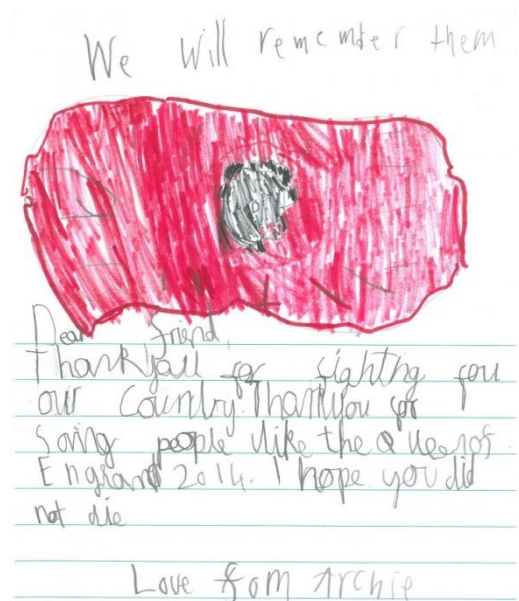 We will rememder them
Dear friend,
Thankyou for fighting fou
our Country. Thankyou for
Soing people like the Queenof
Englrand 2014. I hope you did
not die
Love from Archie